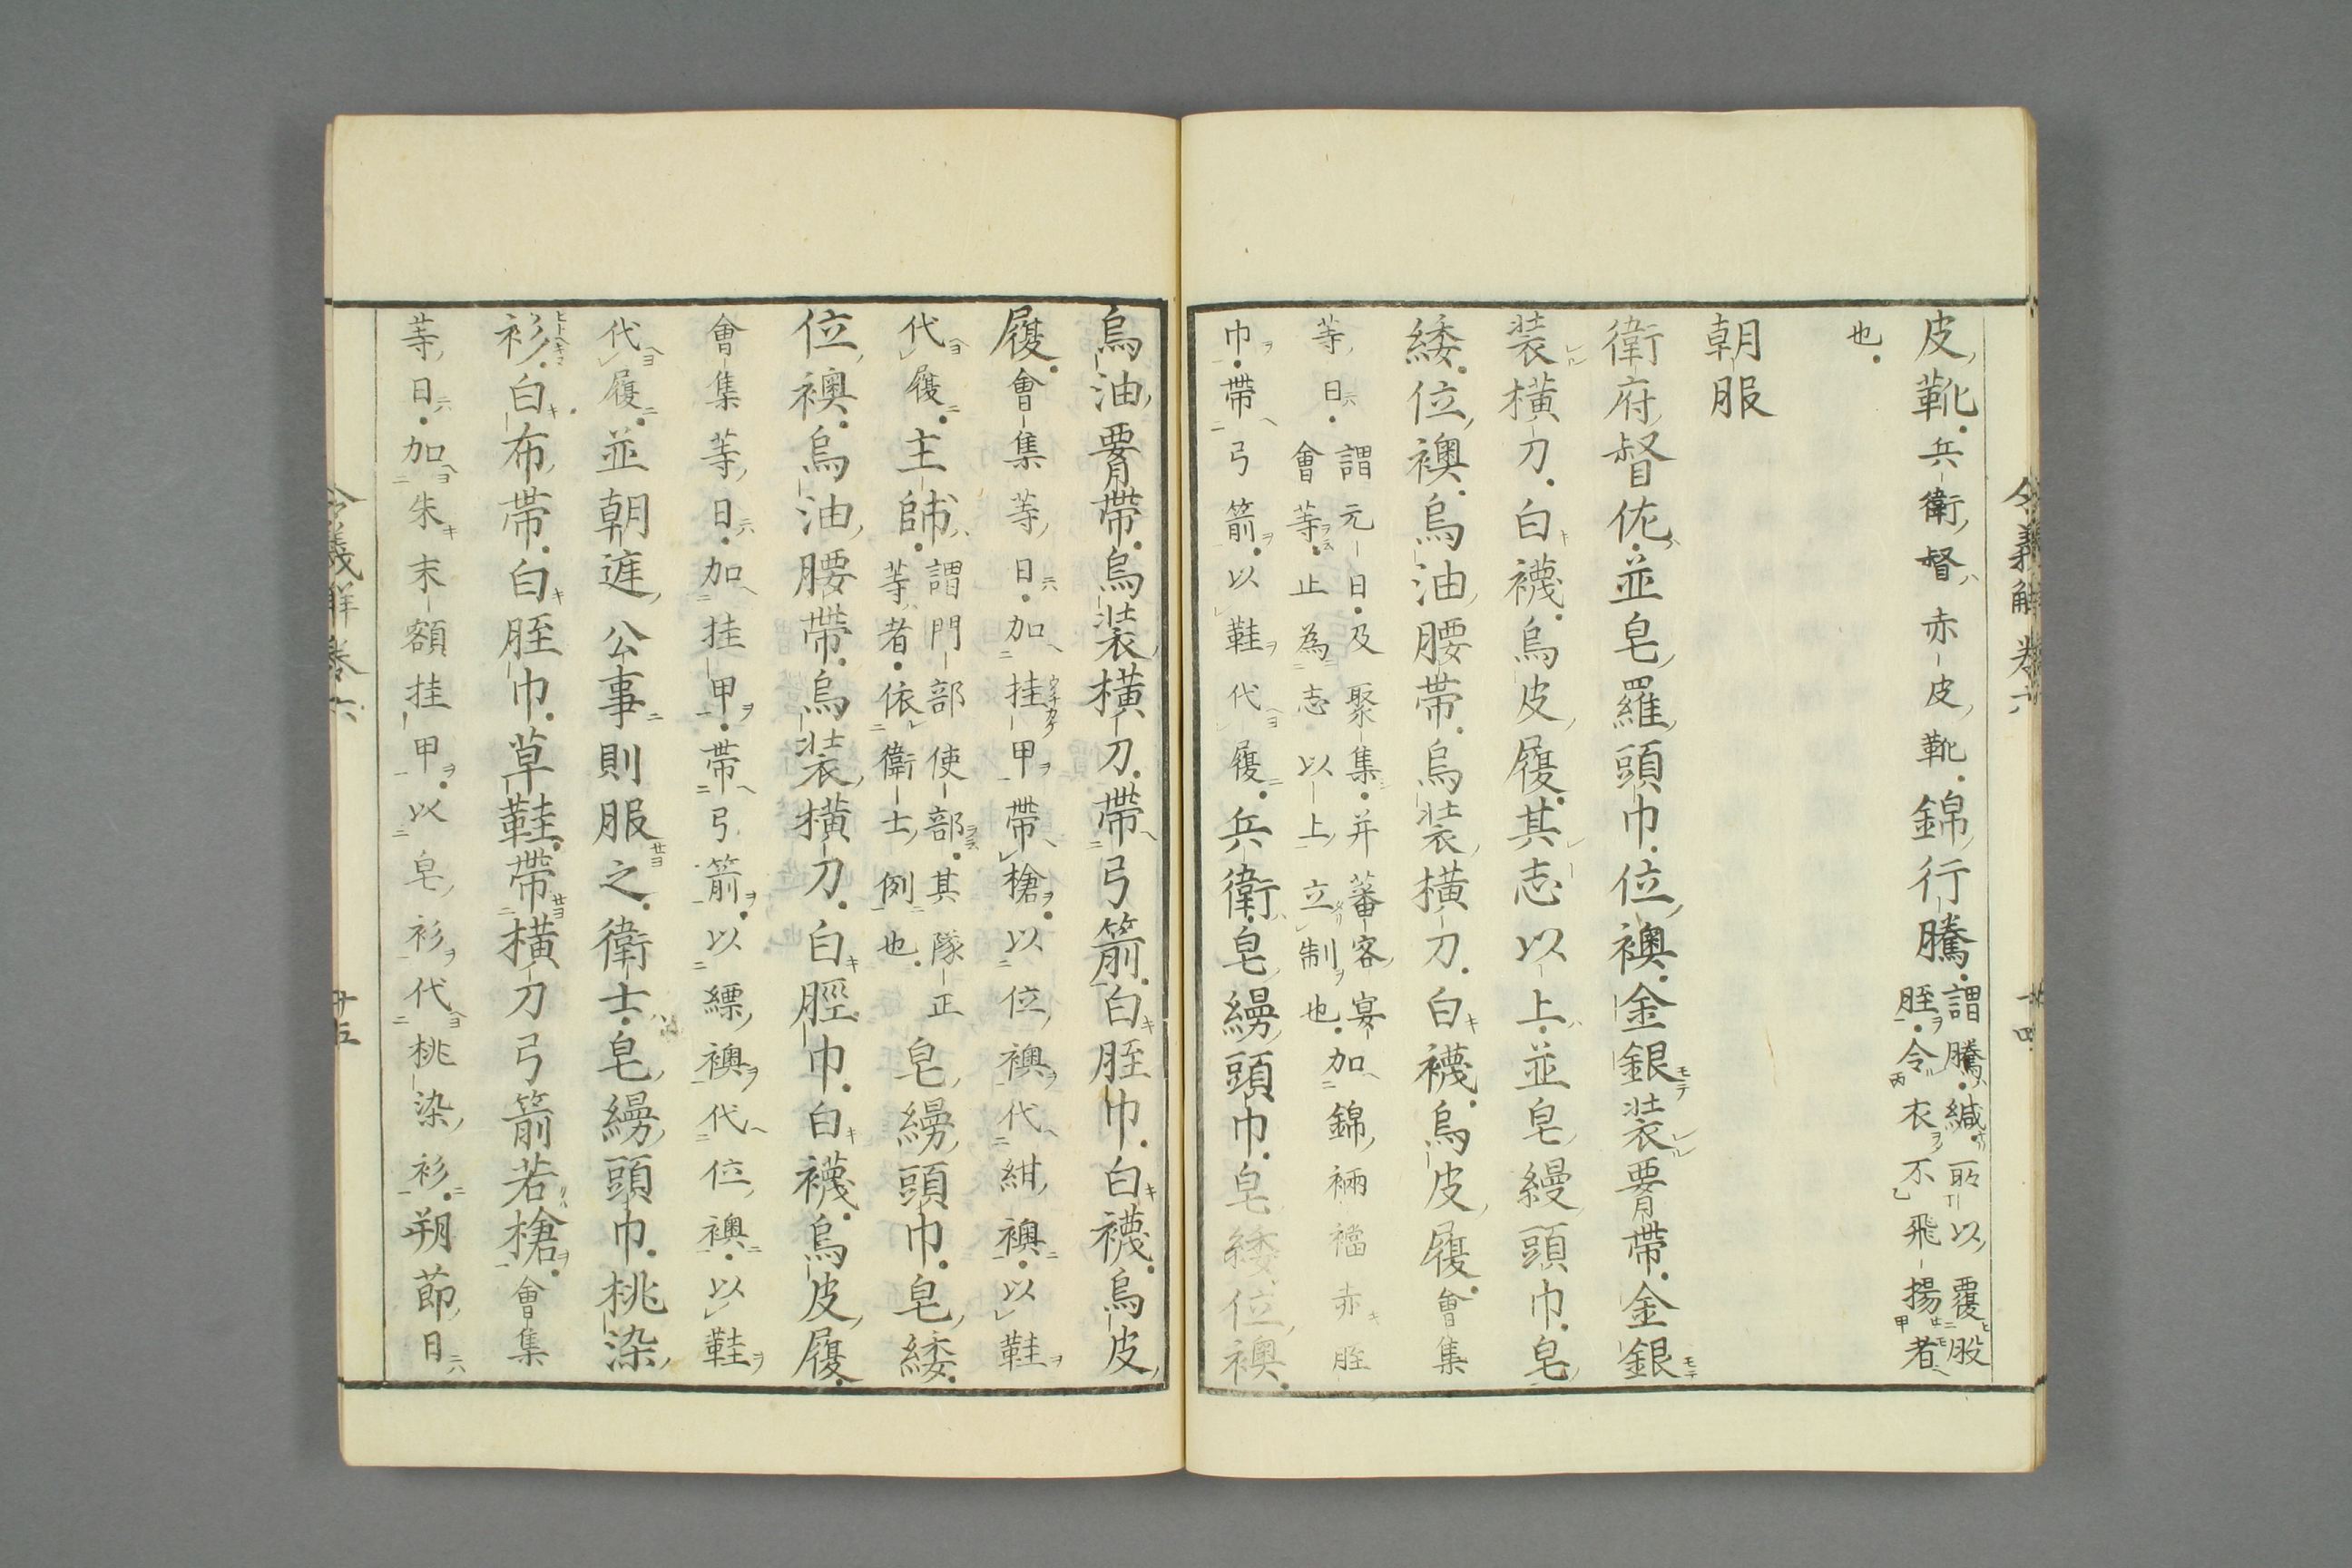 皮靴兵衛督赤皮靴錦行騰謂騰緘所以覆股
脛令衣不飛揚者
也
朝服
衛府督佐並皂羅頭巾位襖金銀装腰帶金銀
装横刀白襪烏皮履其志以上並皂縵頭巾皂
緌位襖烏油腰帶烏装横刀白襪烏皮履會集
等日謂元日及聚集并蕃客宴
會等止為志以上立制也加錦裲襠赤脛
巾帶弓箭以鞋代履兵衛皂縵頭巾皂緌位襖
令義解卷六 廿四
烏油腰帶烏装横刀帶弓箭白脛巾白襪烏皮
履會集等日加挂甲帶槍以位襖代紺襖以鞋
代履主帥謂門部使部其隊正
等者依衛士例也皂縵頭巾皂緌
位襖烏油腰帶烏装横刀白脛巾白襪烏皮履
會集等日加挂甲帶弓箭以縹襖代位襖以鞋
代履並朝庭公事則服之衛士皂縵頭巾桃染
衫白布帶白脛巾草鞋帶横刀弓箭若槍會集
等日加朱末額挂甲以皂衫代桃染衫朔節日
令義解卷六 廿五